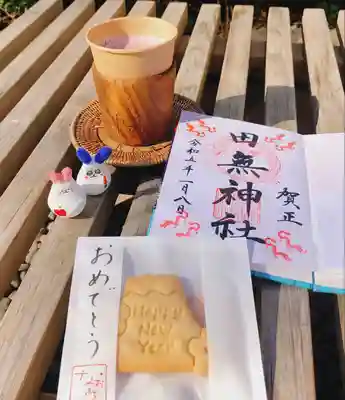 賀正
田無神社
令和五年一月八日
おめでとう
HAPPY
NEW
YEAR